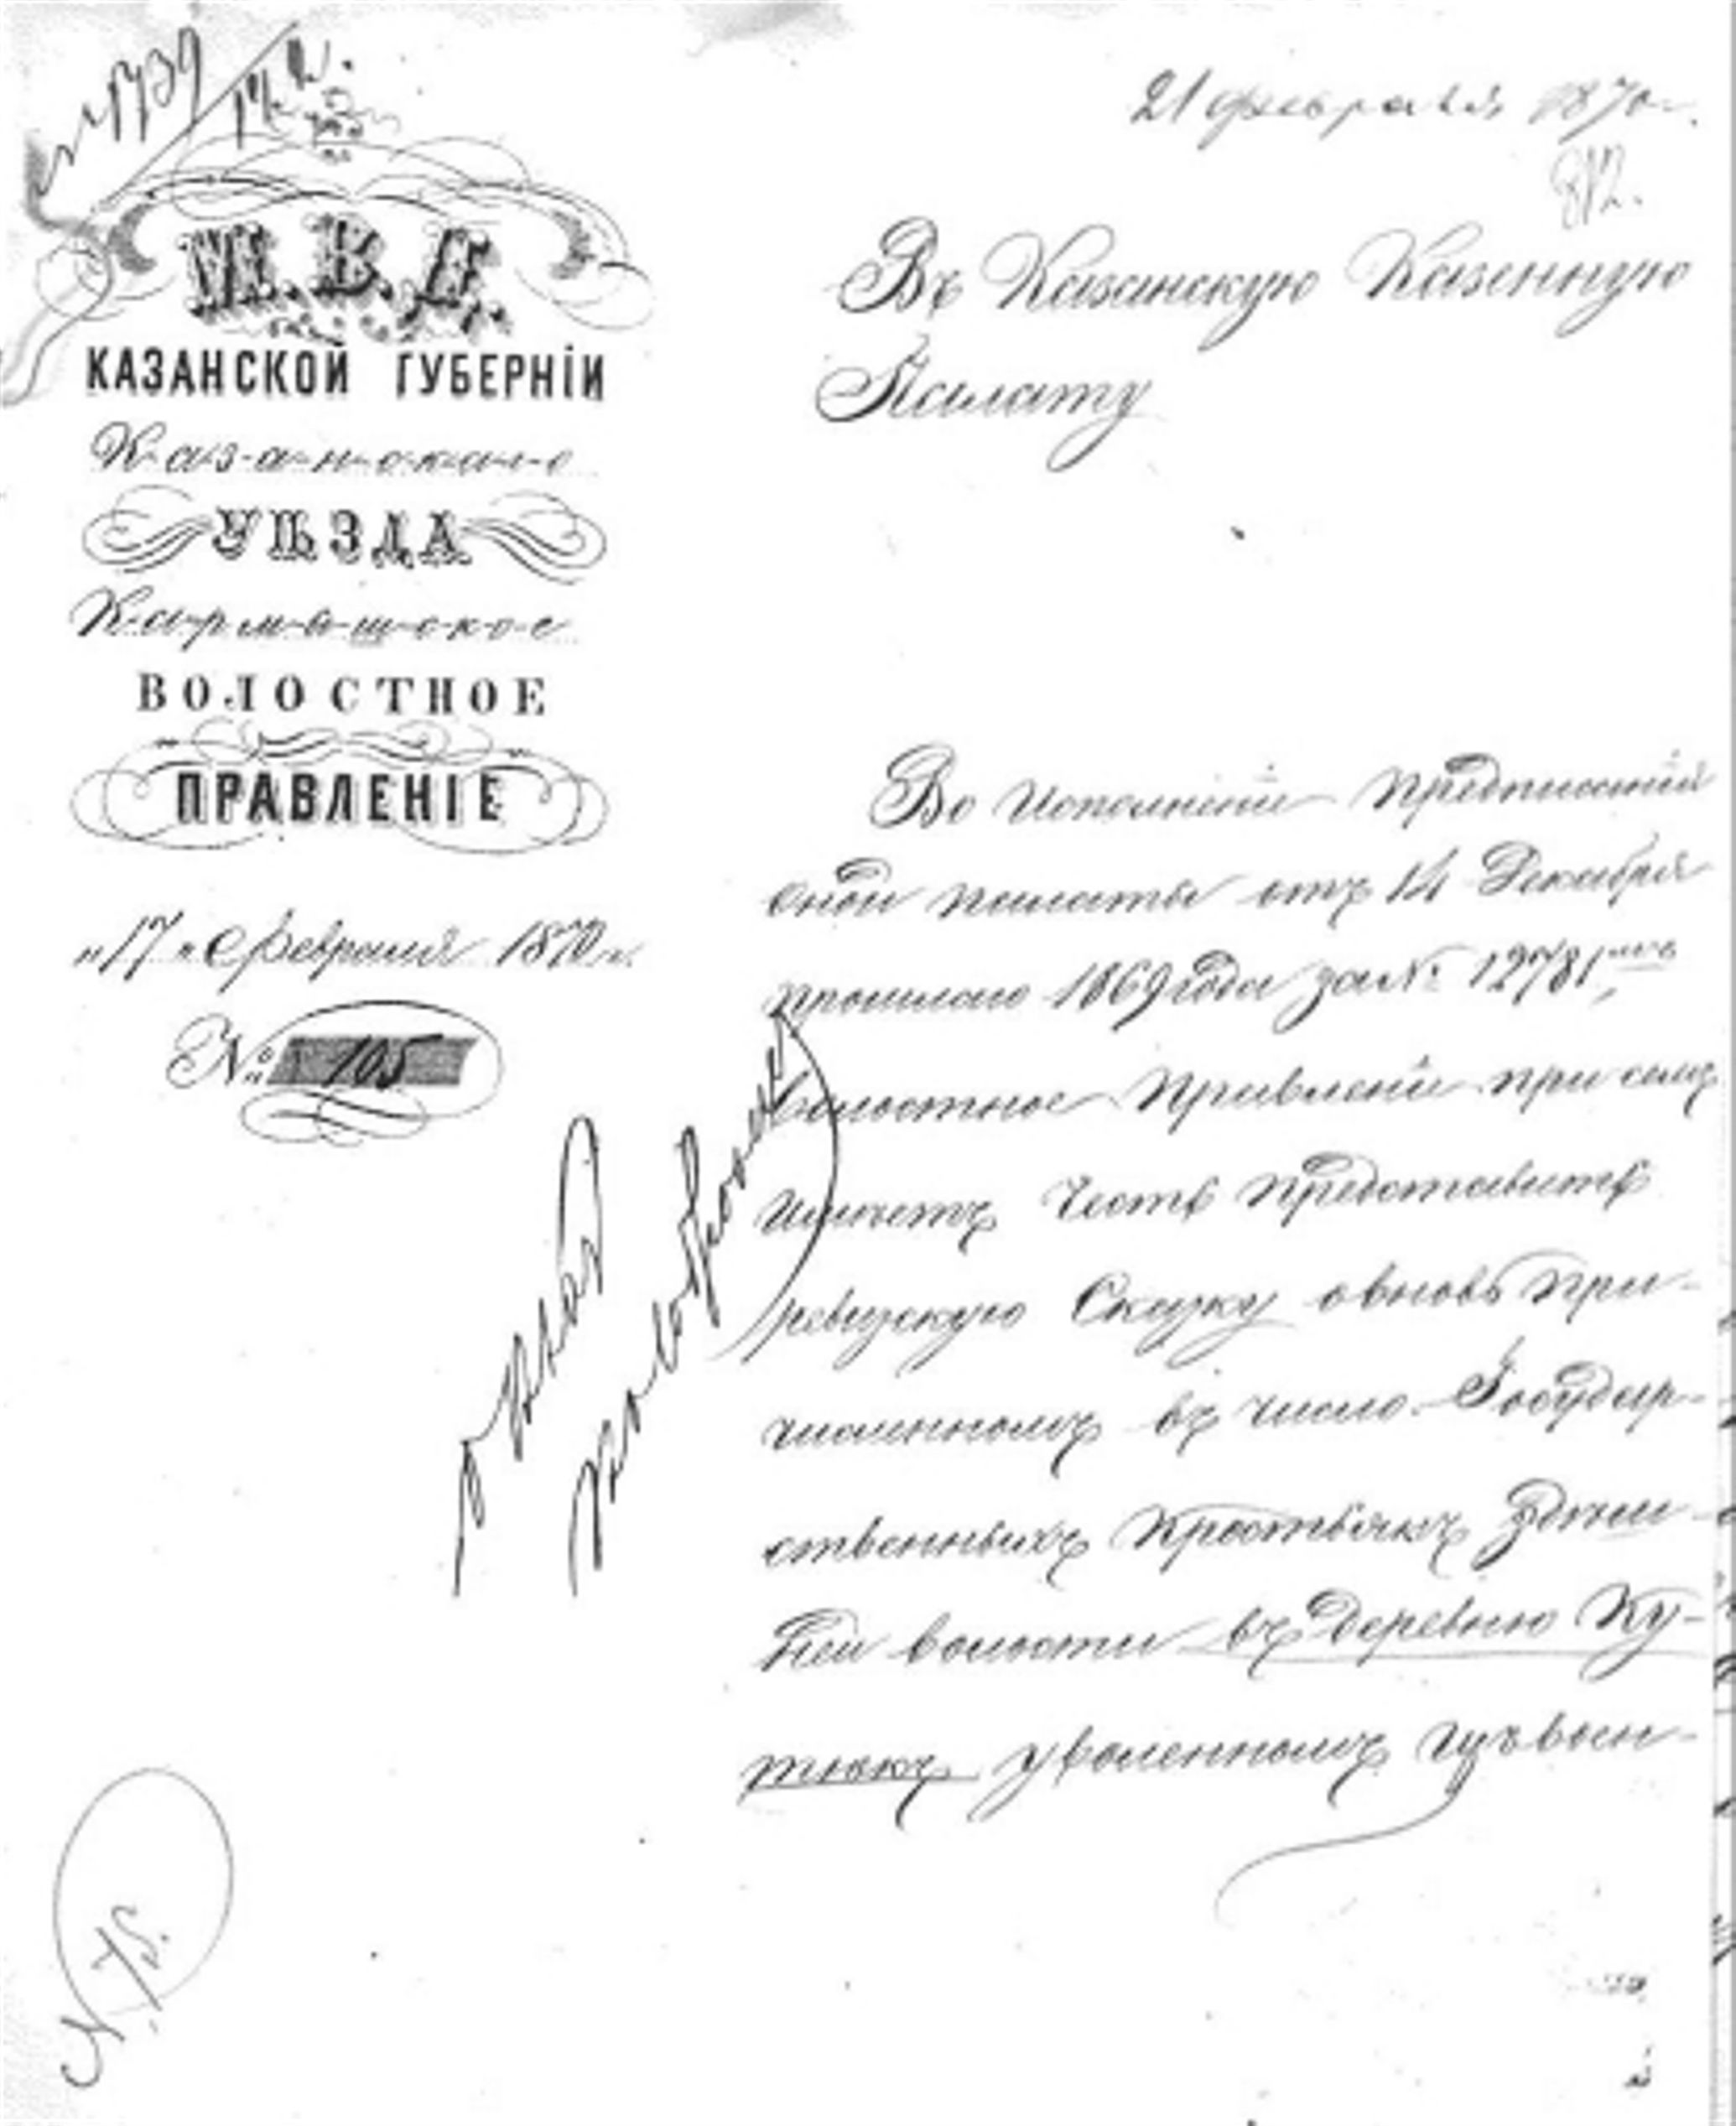 № 1739
21 февраля 1870 г.
812.
М. В. Д.
КАЗАНСКОЙ ГУБЕРНІИ
Казанскаго
УѢЗДА
Кармашское
ВОЛОСТНОЕ
ПРАВЛЕНІЕ
"17" Февраля 1870 г.
№ 105
Въ Казанскую Казенную
Палату
Во Исполненіе предписаній
оной палаты отъ 14 Декабря
прошлаго 1869 года за № 12781,
Волостное Правленіе при семъ
имѣетъ Честь представить
ревизскую Сказку о вновь при-
численномъ въ число Государ-
ственныхъ Крестьянъ здѣш-
ней волости въ деревню Ку-
тюкъ уволенномъ изъ воен-
N. 75.